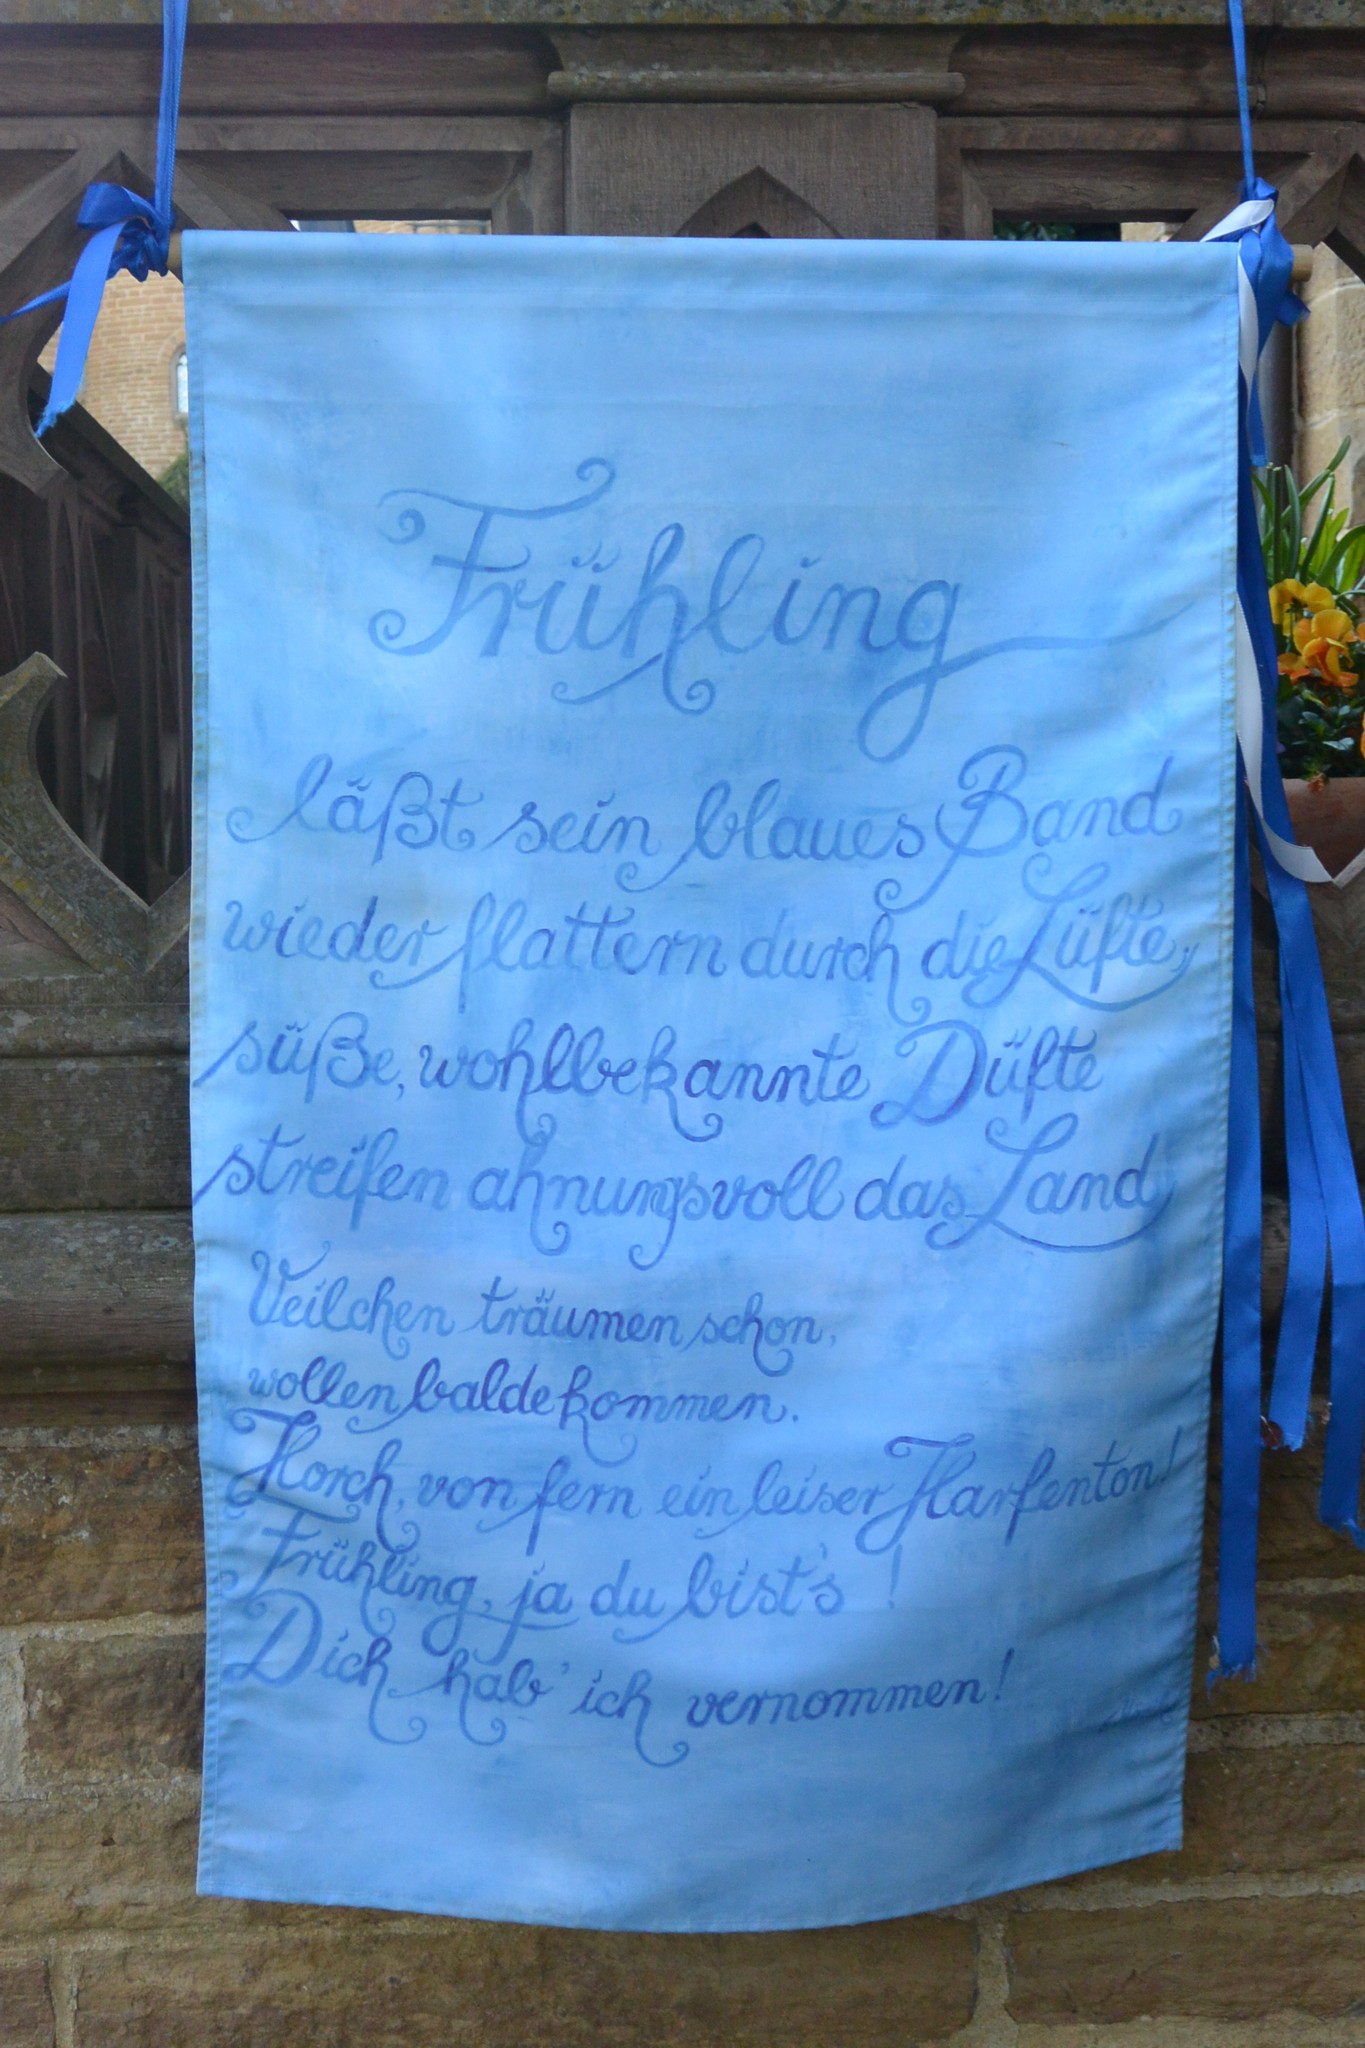 Frühling
läßt sein blaues Band
wieder flattern durch die Lüfte,
süße, wohlbekannte Düfte
streifen ahnungsvoll das Land
Veilchen träumen schon,
wollen balde kommen.
Horch, von fern ein leiser Harfenton!
Frühling, ja du bist's !
Dich hab' ich vernommen!